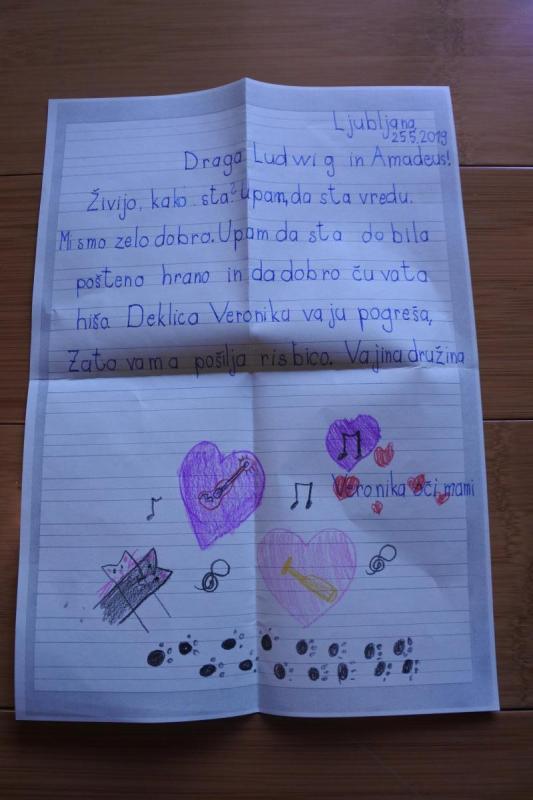 Ljubljana
25.5.2019
Draga Ludwig in Amadeus!
Živijo, kako sta? upam, da sta vredu.
Mi smo zelo dobro. Upam da sta dobila
pošteno hrano in da dobro čuvata
hišo. Deklica Veronika vaju pogreša,
Zato vama pošilja risbico. Vajina družina
Veronika oči, mami